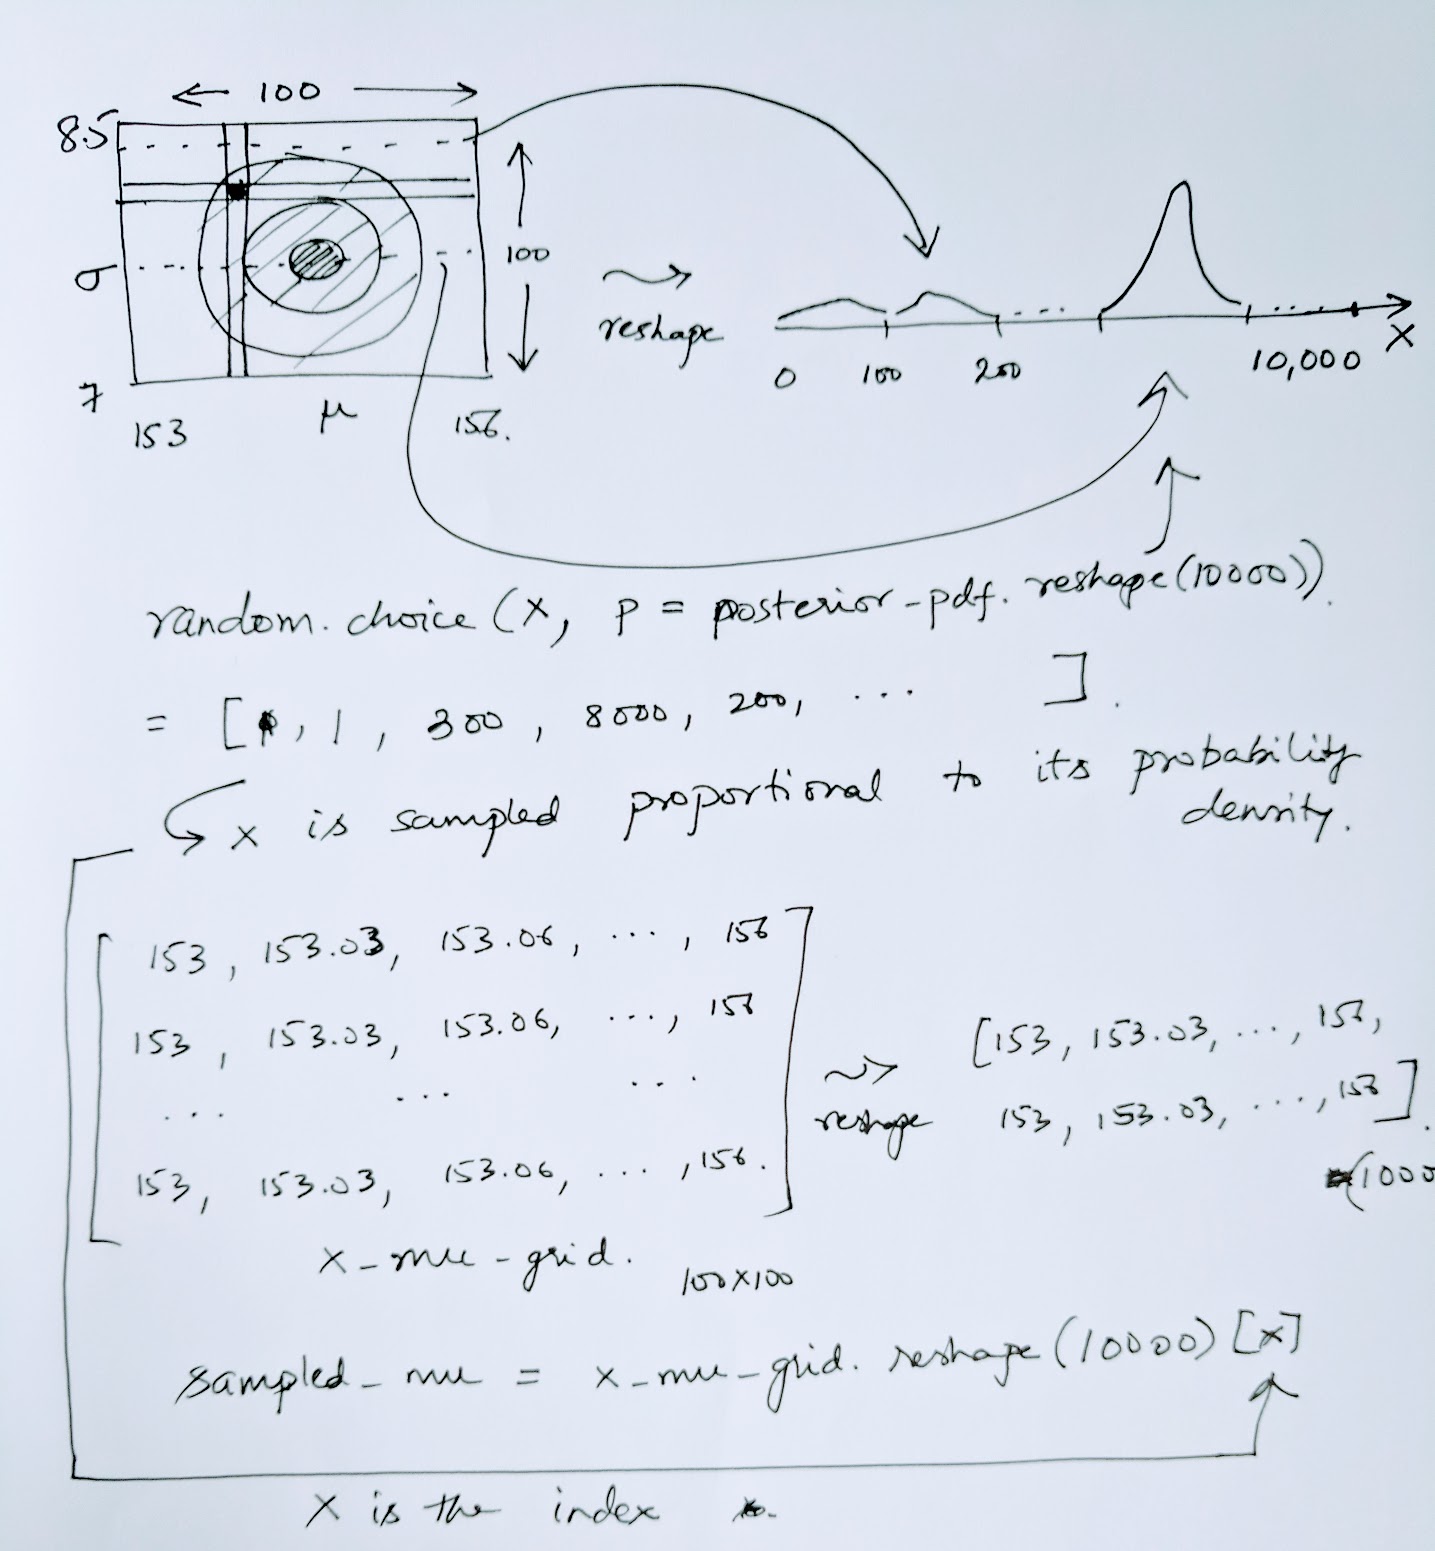 ← 100 →
8.5
σ
100
7
153
μ
156.
reshape
0 100 200 ... 10,000 X
random.choice (x, p = posterior-pdf.reshape(10000)).
= [ , 1, 300, 8000, 200, ... ].
x is sampled proportional to its probability
density.
153, 153.03, 153.06, ..., 156
153, 153.03, 153.06, ..., 156
... ... ...
153, 153.03, 153.06, ..., 156.
x-mu-grid. 100x100
reshape
[153, 153.03, ..., 156,
153, 153.03, ..., 156].
(1000
sampled_mu = x-mu-grid.reshape(10000)[x]
X is the index